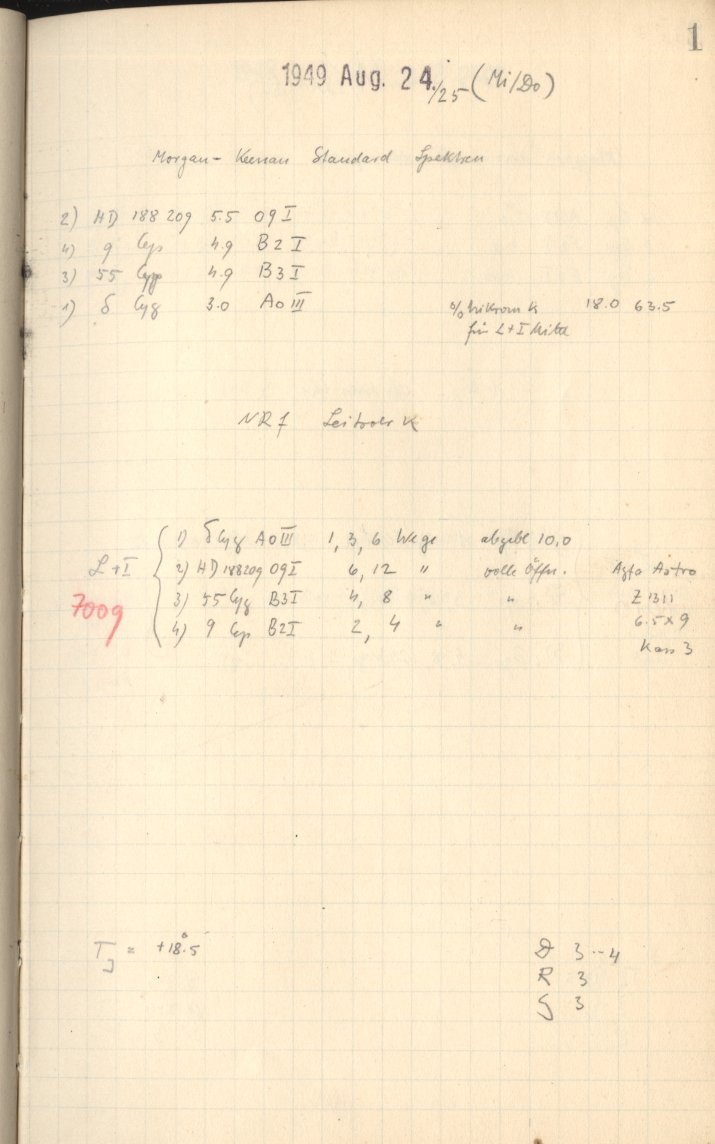 1
1949 Aug. 24./25 (Mi/Do)
Morgan - Keenan Standard Spektren
2) HD 188 209 5.5 O9 I
4) 9 Cep 4.9 B2 I
3) 55 Cyg 4.9 B3 I
1) δ Cyg 3.0 A0 III 18.0 63.5
für L+I Mitte
NR 7 Leitrohr K
1) δ Cyg A0 III 1, 3, 6 Wege abgebl 10,0
L+I 2) HD 188209 O9 I 6, 12 " volle Öffn. Agfa Astro
7009 3) 55 Cyg B3 I 4, 8 " " Z 1311
4) 9 Cep B2 I 2, 4 " " 6.5 x 9
Kass 3
T_J = +18°.5
D 3--4
R 3
S 3